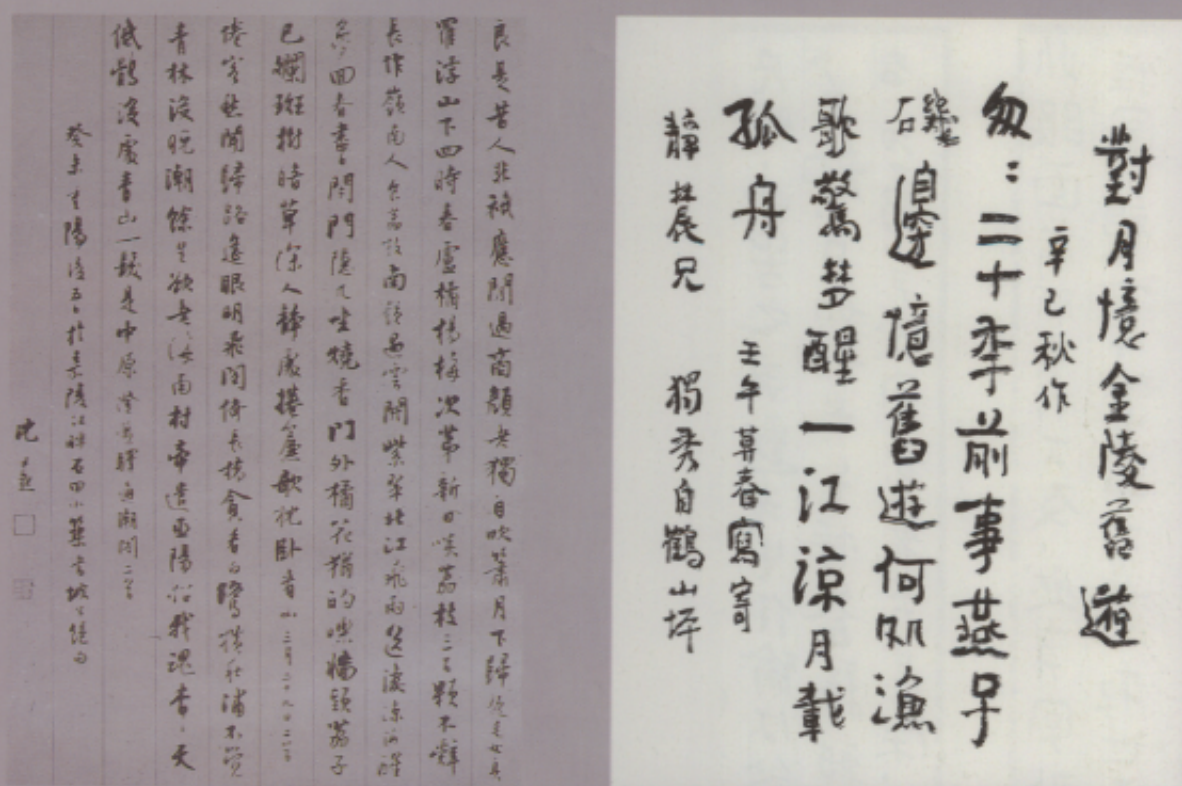 對月憶金陵舊遊
辛巳秋作
匆：二十季前事燕子
磯邊憶舊遊何処漁
歌驚夢醒一江涼月載
孤舟 壬午暮春寫寄
靜農兄 獨秀自鶴山坪
良是昔人非袛應閒過商顏老獨自吹簫月下歸
羅浮山下四時春盧橘楊梅次第新日啖荔枝三百顆不辭
長作嶺南人 食荔枝 南嶺過雲開紫翠北江飛雨送淒涼酒醒
夢回春盡日閉門隱几坐燒香門外橘花猶的皪牆頭荔子
已斕斑樹暗草深人靜處捲簾欹枕臥看山 三月二十九日二首
倦客愁聞歸路遙眼明飛閣俯長橋貪看白鷺橫秋浦不覺
青林沒晚潮餘生欲老海南村帝遣巫陽招我魂杳杳天
低鶻沒處青山一髮是中原 澄邁驛通潮閣二首
癸未重陽後五日於嘉陵江畔石田小築書坡公絕句
沈尹默